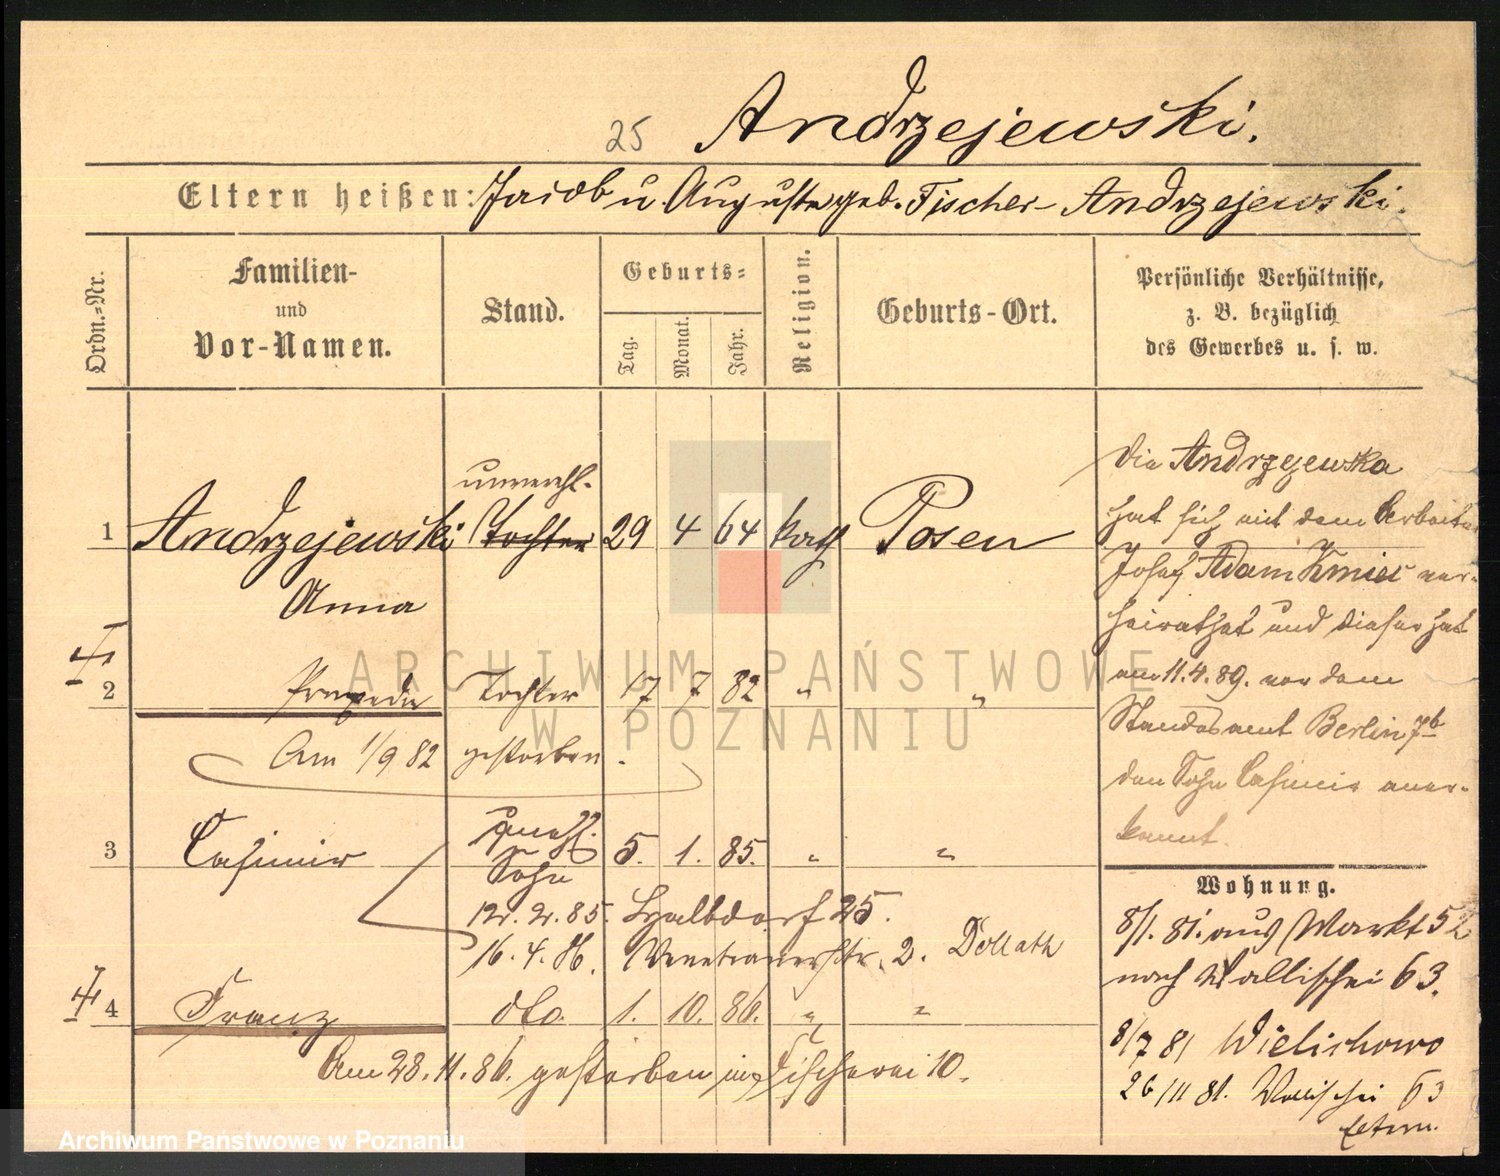 25 Andrzejewski.
Eltern heißen: Jacob u Auguste geb. Fischer - Andrzejewski.
Ordn.-Nr.
Familien-
und
Vor-Namen.
Stand.
Geburts-
Tag.
Monat.
Jahr.
Religion.
Geburts-Ort.
Persönliche Verhältnisse,
z. B. bezüglich
des Gewerbes u. s. w.
unverehl.
1 Andrzejewski Tochter 29 4 64 kath Posen
Anna
2 Praxedis Tochter 17 7 82 " "
Am 1/9 82 gestorben.
unehl.
3 Casimir Sohn 5. 1. 85. " "
12. 2. 85. Halbdorf 25.
16. 4. 86. Venetianerstr. 2. Dollath
4 Franz dto. 1. 10. 86. " "
Am 28. 11. 86. gestorben in Fischerei 10.
Die Andrzejewska
hat sich mit dem Arbeiter
Josef Adam Kmiec ver-
heirathet und dieser hat
am 11. 4. 89. vor dem
Standesamt Berlin 7b
den Sohn Casimir aner-
kannt.
Wohnung.
8/1. 81. aus Markt 52
nach Wallischei 63.
8/7 81 Wielichowo
26/11 81. Wallischei 63
Eltern.
ARCHIWUM PAŃSTWOWE
W POZNANIU
Archiwum Państwowe w Poznaniu